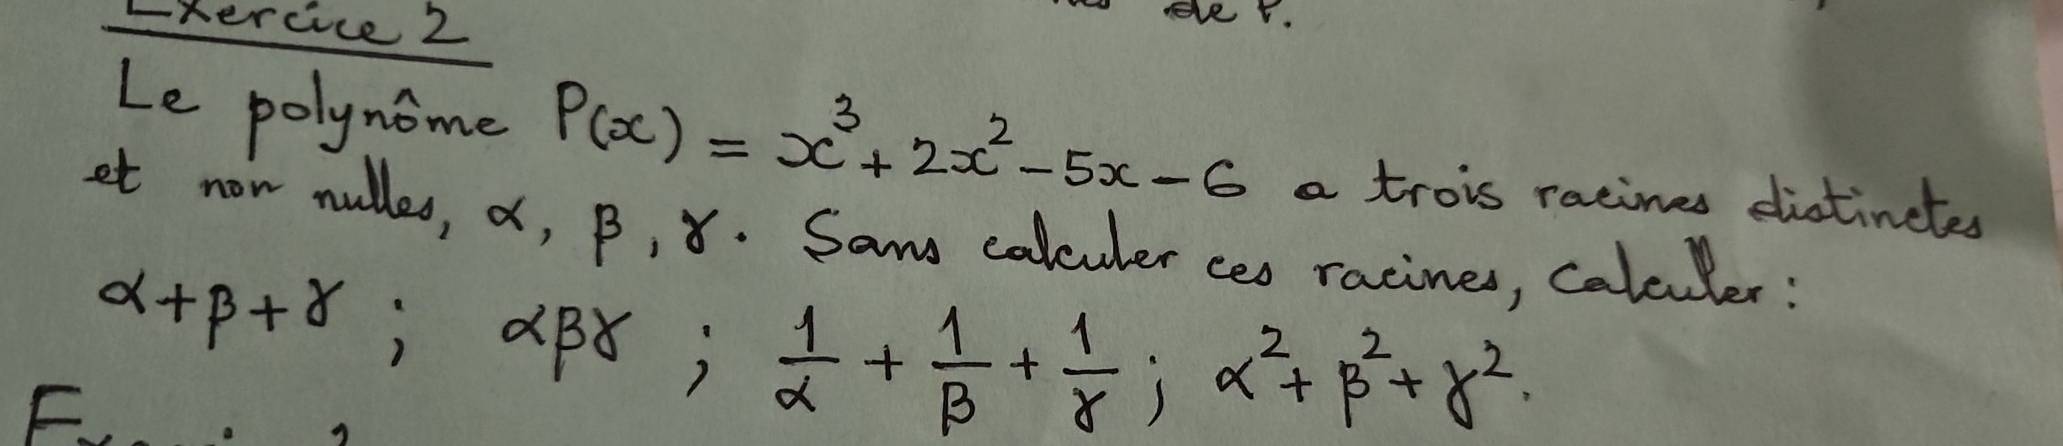 de P.
Exercice 2
Le polynôme P(x) = x³ + 2x² - 5x - 6 a trois racines distinctes
et non nulles, α, β, γ. Sans calculer ces racines, calculer :
α+β+γ ; αβγ ; 1/α + 1/β + 1/γ ; α² + β² + γ².